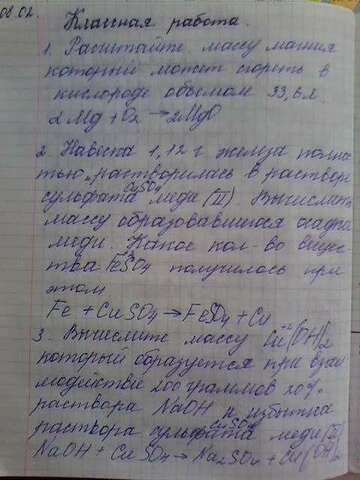 08.02.
Классная работа.
1. Расчитайте массу магния
который может сгореть в
кислороде объемом 33,6 л.
2Mg + O2 → 2MgO
2. Навеска 1,12 г железа полнос
тью растворилась в растворе
CuSO4
сульфата меди (II) Вычислить
массу образовавшегося осадка
меди. Какое кол-во вещес
тва FeSO4 получилось при
этом
Fe + CuSO4 → FeSO4 + Cu
3. Вычислите массу Cu+2(OH)2
который образуется при взаи
модействие 200 граммов 20%
раствора NaOH и избытка
CuSO4
раствора сульфата меди (II)
NaOH + CuSO4 → Na2SO4 + Cu(OH)2